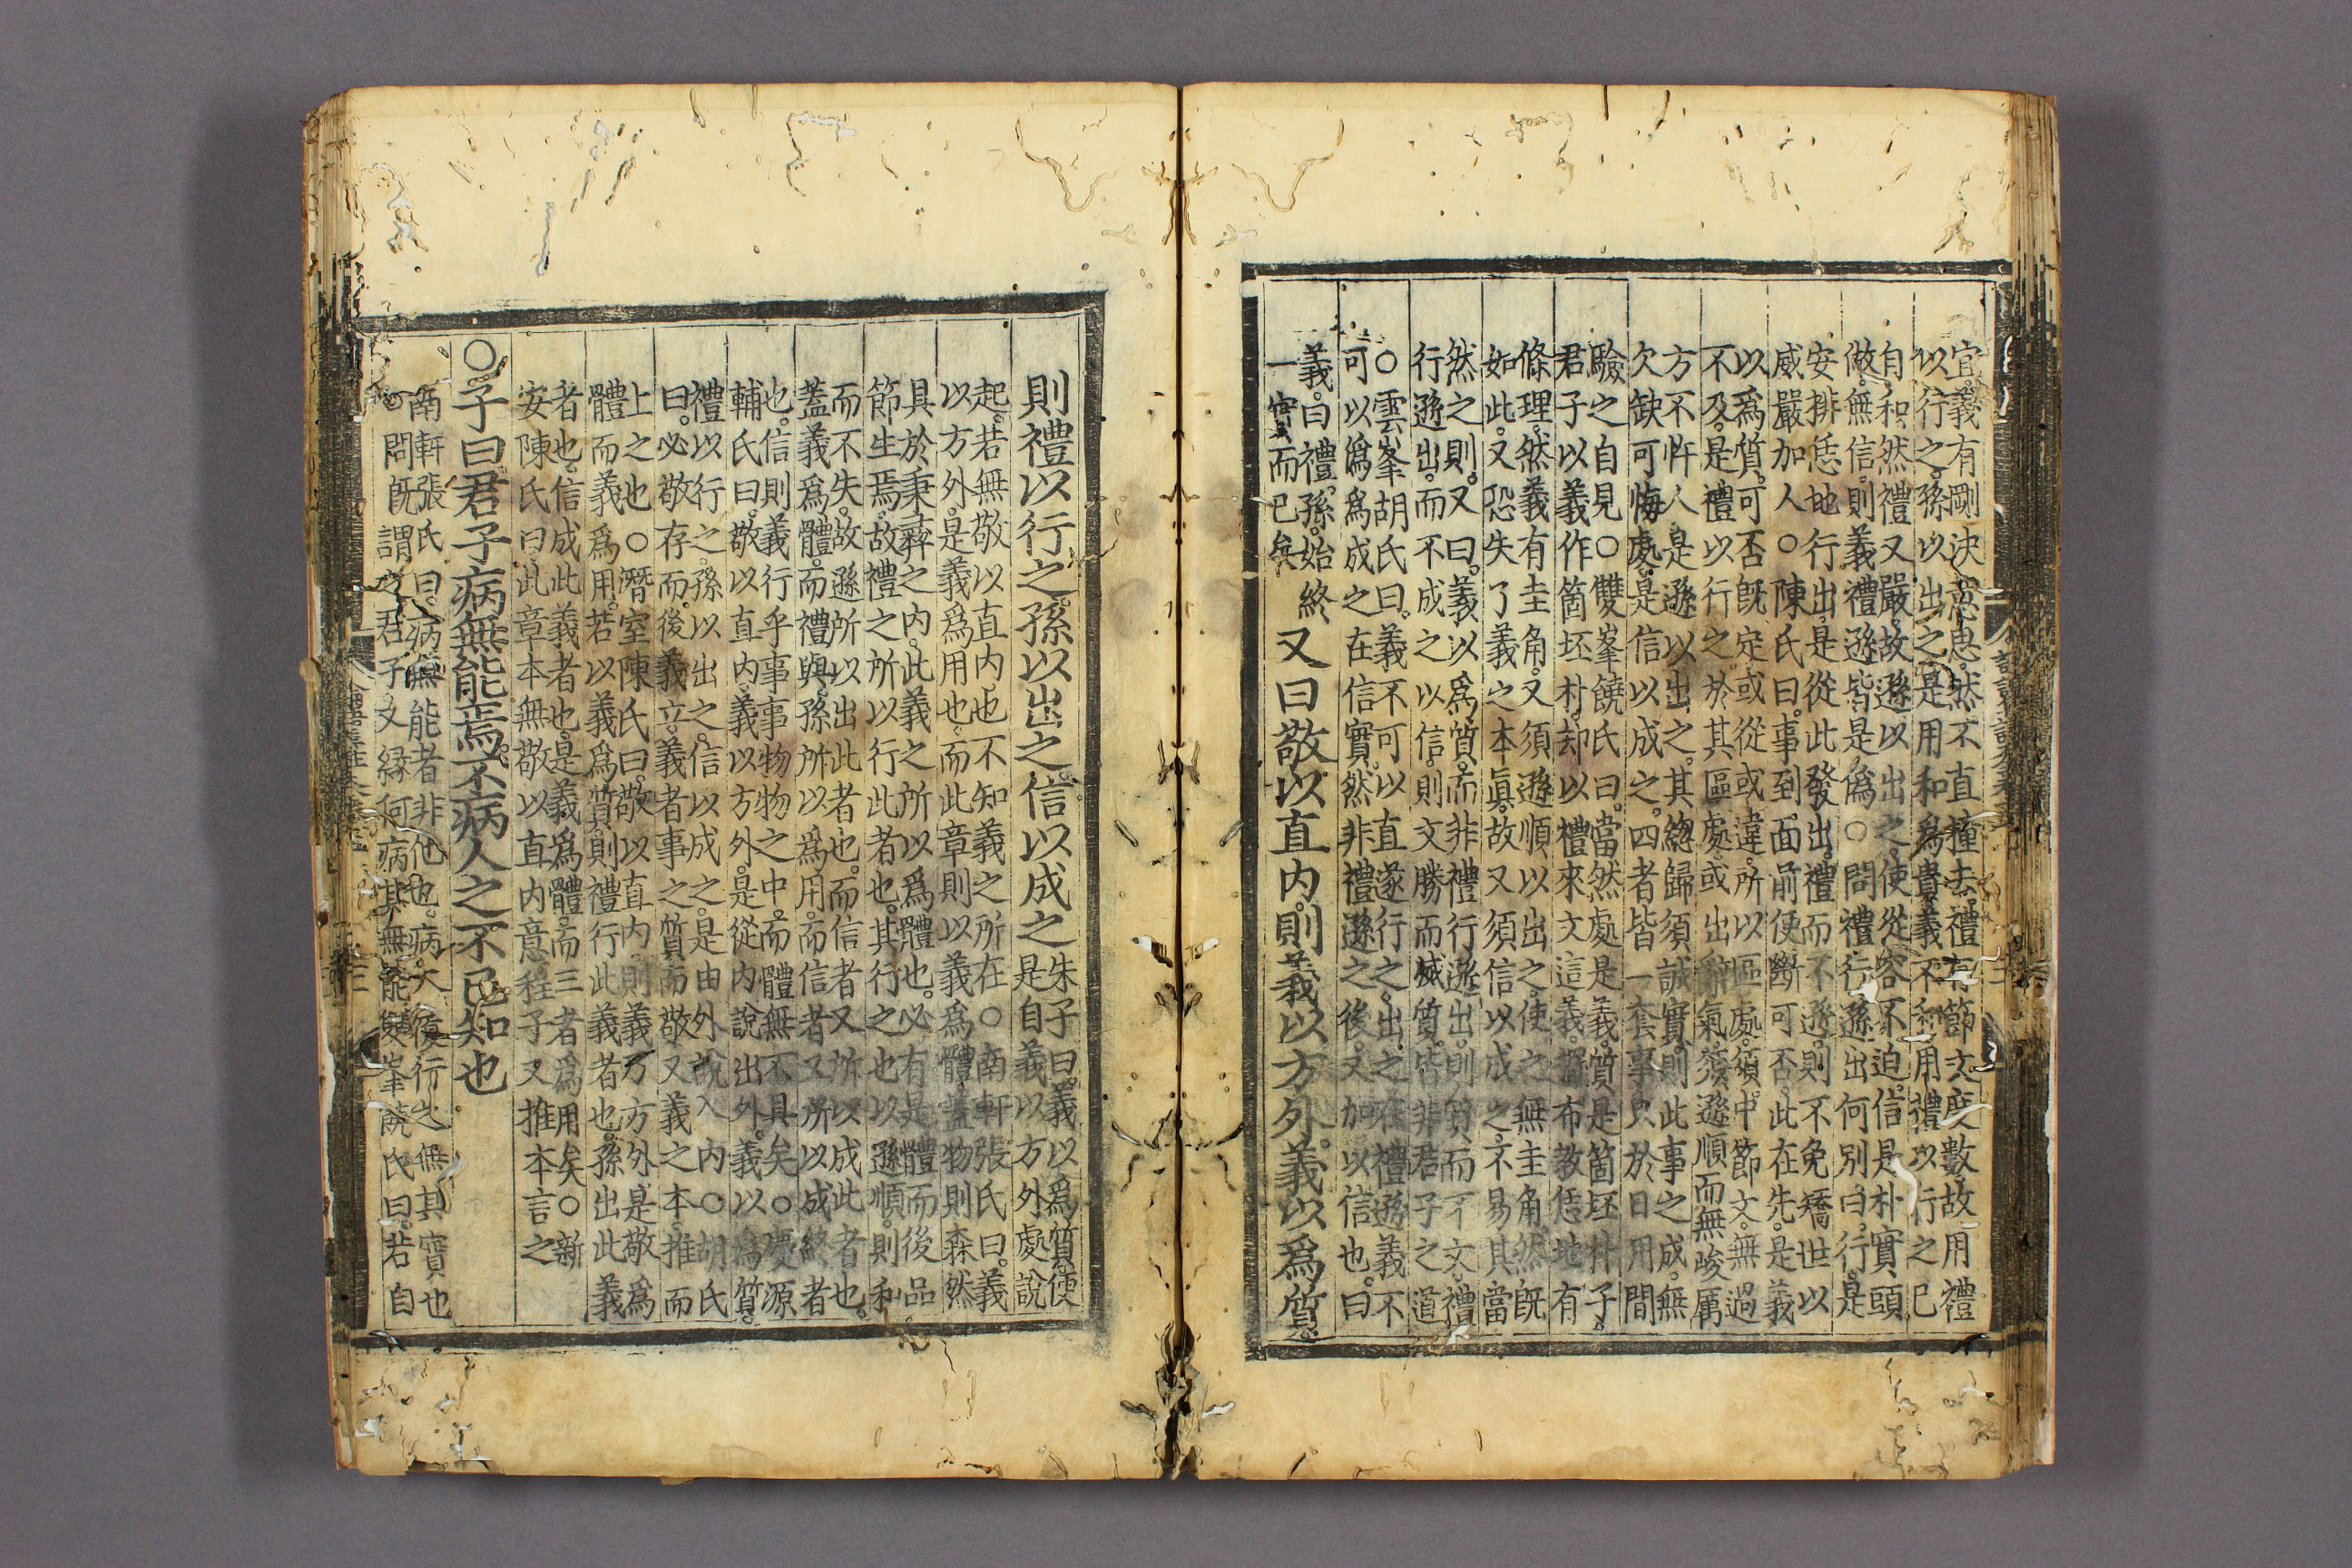 宜義有剛決意思然不直撞去禮有節文度數故用禮
以行之孫以出之是用和爲貴義不和用禮以行之已
自和然禮又嚴故遜以出之使從容不迫信是朴實頭
做無信則義禮遜皆是僞○問禮行遜出何別曰行是
安排恁地行出是從此發出禮而不遜則不免矯世以
威嚴加人○陳氏曰事到面前便斷可否此在先是義
以爲質可否旣定或從或違所以區處須中節文無過
不及是禮以行之於其區處或出辭氣須遜順而無峻厲
方不忤人是遜以出之其緫歸須誠實則此事之成無
欠缺可悔處是信以成之四者皆一套事只於日用間
驗之自見○雙峯饒氏曰當然處是義質是箇坯朴子
君子以義作箇坯朴却以禮來文這義擺布教恁地有
條理然義有圭角又須遜順以出之使之無圭角然旣
如此又恐失了義之本眞故又須信以成之不易其當
然之則又曰義以爲質而非禮行遜出則質而不文禮
行遜出而不成之以信則文勝而滅質皆非君子之道
○雲峯胡氏曰義不可以直遂行之出之在禮遜義不
可以僞爲成之在信實然非禮遜之後又加以信也曰
義曰禮孫始終
一實而已矣
又曰敬以直內則義以方外義以爲質
則禮以行之孫以出之信以成之
朱子曰義以爲質便
是自義以方外處說
起若無敬以直內也不知義之所在○南軒張氏曰義
以方外是義爲用也而此章則以義爲體蓋物則森然
具於秉彝之內此義之所以爲體也必有是體而後品
節生焉故禮之所以行此者也其行之也以遜順則和
而不失故遜所以出此者也而信者又所以成此者也
蓋義爲體而禮與孫所以爲用而信者又所以成終者
也信則義行乎事事物物之中而體無不具矣○慶源
輔氏曰敬以直內義以方外是從內說出外義以爲質
禮以行之孫以出之信以成之是由外說入內○胡氏
曰必敬存而後義立義者事之質而敬又義之本推而
上之也○潛室陳氏曰敬以直內則義乃方外是敬爲
體而義爲用若以義爲質則禮行此義者也孫出此義
者也信成此義者也是義爲體而三者爲用矣○新
安陳氏曰此章本無敬以直內意程子又推本言之
○子曰君子病無能焉不病人之不己知也
南軒張氏曰病無能者非他也病夫履行之無其實也
○問旣謂之君子又緣何病其無能雙峯饒氏曰若自